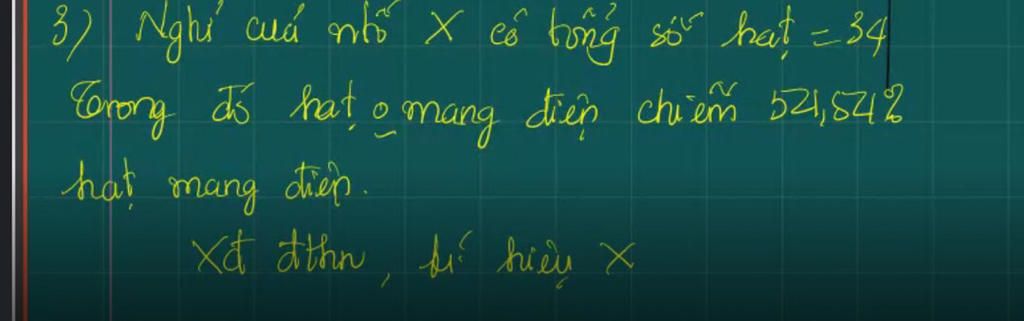 3) Nghí cuả nhố X có tổng số hạt = 34
Trong đó hạt o mang điện chiếm 54,54%
hạt mang điện.
Xđ đthn, kí hiệu X